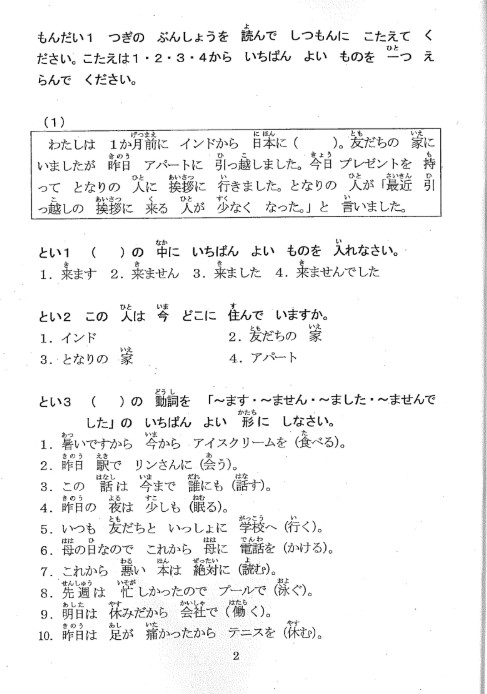 もんだい１ つぎの ぶんしょうを 読んで しつもんに こたえて く
ださい。こたえは１・２・３・４から いちばん よい ものを 一つ え
らんで ください。
（１）
わたしは １か月前に インドから 日本に（　　）。友だちの 家に
いましたが 昨日 アパートに 引っ越しました。今日 プレゼントを 持
って となりの 人に 挨拶に 行きました。となりの 人が「最近 引
っ越しの 挨拶に 来る 人が 少なく なった。」と 言いました。
とい１ （　　）の 中に いちばん よい ものを 入れなさい。
１．来ます ２．来ません ３．来ました ４．来ませんでした
とい２ この 人は 今 どこに 住んで いますか。
１．インド ２．友だちの 家
３．となりの 家 ４．アパート
とい３ （　　）の 動詞を 「～ます・～ません・～ました・～ませんで
した」の いちばん よい 形に しなさい。
１．暑いですから 今から アイスクリームを（食べる）。
２．昨日 駅で リンさんに（会う）。
３．この 話は 今まで 誰にも（話す）。
４．昨日の 夜は 少しも（眠る）。
５．いつも 友だちと いっしょに 学校へ（行く）。
６．母の日なので これから 母に 電話を（かける）。
７．これから 悪い 本は 絶対に（読む）。
８．先週は 忙しかったので プールで（泳ぐ）。
９．明日は 休みだから 会社で（働く）。
10．昨日は 足が 痛かったから テニスを（休む）。
2